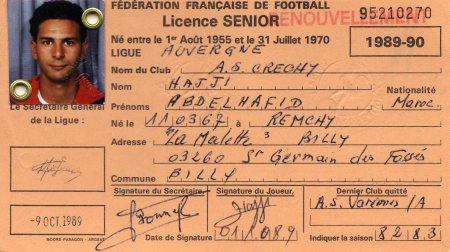 FÉDÉRATION FRANÇAISE DE FOOTBALL
Licence SENIOR
RENOUVELLEMENT
95210270
Né entre le 1er Août 1955 et le 31 Juillet 1970
1989-90
LIGUE AUVERGNE
Nom du Club A.S. CRECHY
Nom HAJJI
Nationalité
Prénoms ABDELHAFID
Maroc.
Le Secrétaire Général
de la Ligue :
Né le 110367 à REMCHY
Adresse "La Malette" BILLY
03260 St Germain des Fossés
Commune BILLY
Signature du Secrétaire
Signature du Joueur.
Dernier Club quitté
A.S. Varennes /A
-9 OCT. 1989
Date de Signature 011089
Indiquer la saison 82 83